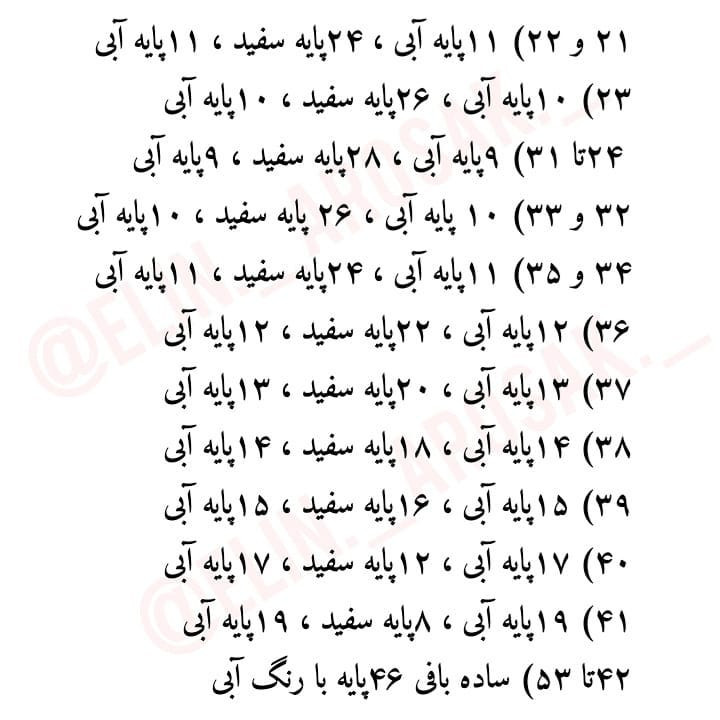 ۲۱ و ۲۲) ۱۱پایه آبی ، ۲۴پایه سفید ، ۱۱پایه آبی
۲۳) ۱۰پایه آبی ، ۲۶پایه سفید ، ۱۰پایه آبی
۲۴تا ۳۱) ۹پایه آبی ، ۲۸پایه سفید ، ۹پایه آبی
۳۲ و ۳۳) ۱۰ پایه آبی ، ۲۶ پایه سفید ، ۱۰پایه آبی
۳۴ و ۳۵) ۱۱پایه آبی ، ۲۴پایه سفید ، ۱۱پایه آبی
۳۶) ۱۲پایه آبی ، ۲۲پایه سفید ، ۱۲پایه آبی
۳۷) ۱۳پایه آبی ، ۲۰پایه سفید ، ۱۳پایه آبی
۳۸) ۱۴پایه آبی ، ۱۸پایه سفید ، ۱۴پایه آبی
۳۹) ۱۵پایه آبی ، ۱۶پایه سفید ، ۱۵پایه آبی
۴۰) ۱۷پایه آبی ، ۱۲پایه سفید ، ۱۷پایه آبی
۴۱) ۱۹پایه آبی ، ۸پایه سفید ، ۱۹پایه آبی
۴۲تا ۵۳) ساده بافی ۴۶پایه با رنگ آبی
@ELIN._AROSAK._
@ELIN._AROSAK._